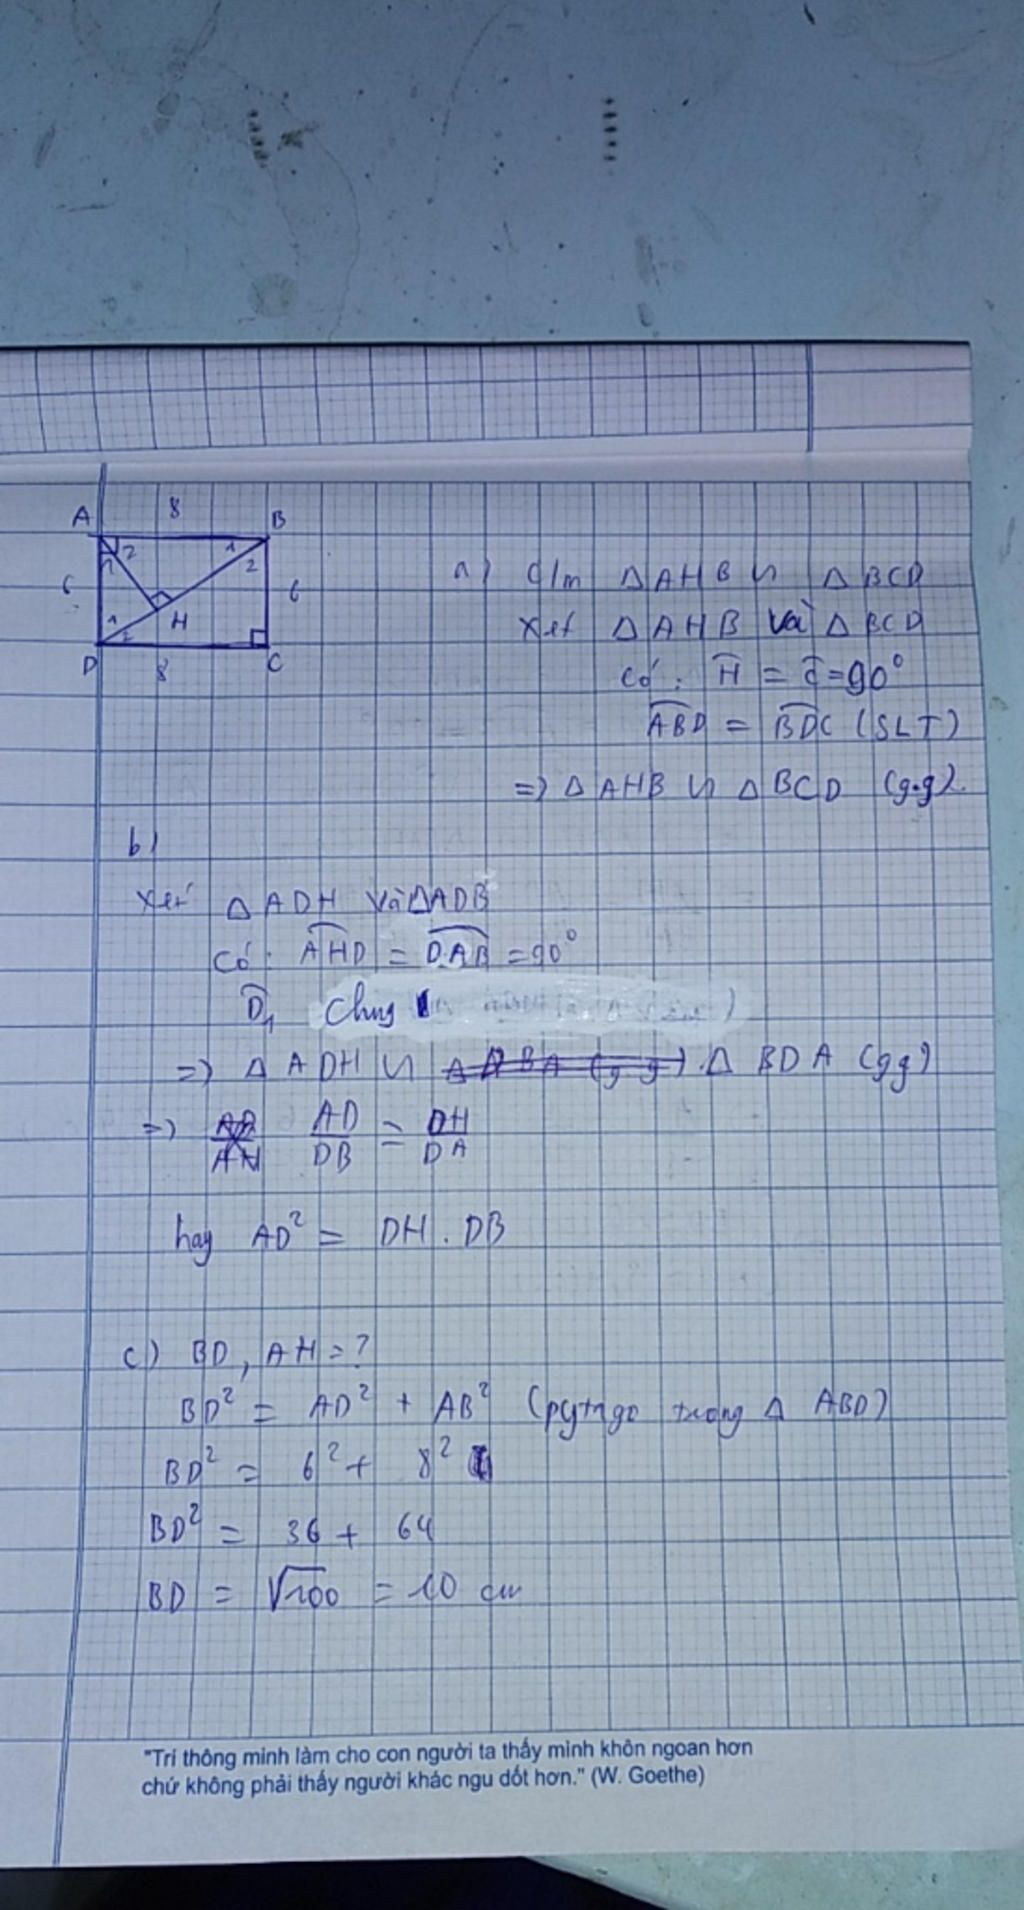 A 8 B
2 1
1 2
6 6
1 H
2
D 8 C
a) c/m Δ AHB ∽ Δ BCD
Xét Δ AHB và Δ BCD
có: Ĥ = Ĉ = 90°
ABD̂ = BDĈ (SLT)
=> Δ AHB ∽ Δ BCD (g.g).
b)
Xét Δ ADH và Δ ADB
có: AHD̂ = DAB̂ = 90°
D̂₁ Chung
=> Δ ADH ∽ Δ BDA (gg)
=> AD/DB = DH/DA
hay AD² = DH . DB
c) BD, AH = ?
BD² = AD² + AB² (pytago trong Δ ABD)
BD² = 6² + 8²
BD² = 36 + 64
BD = √100 = 10 cm
"Trí thông minh làm cho con người ta thấy mình khôn ngoan hơn
chứ không phải thấy người khác ngu dốt hơn." (W. Goethe)